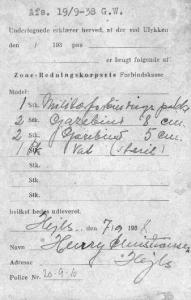 Afs. 19/9-38 G.W.
Undertegnede erklærer herved, at der ved Ulykken
den / 193 paa
er brugt følgende af
Zone-Redningskorpsets Forbindskasse
Model:
1 Stk.
2 Stk. Gazebind 8 cm.
2 Stk. Gazebind 5 cm
1 Stk. Vat (steril)
Stk.
Stk.
Stk.
hvilket bedes udleveret.
Hejls den 7/9 1938
Navn Henry
Adresse Hejls
Police Nr. 20-9-10